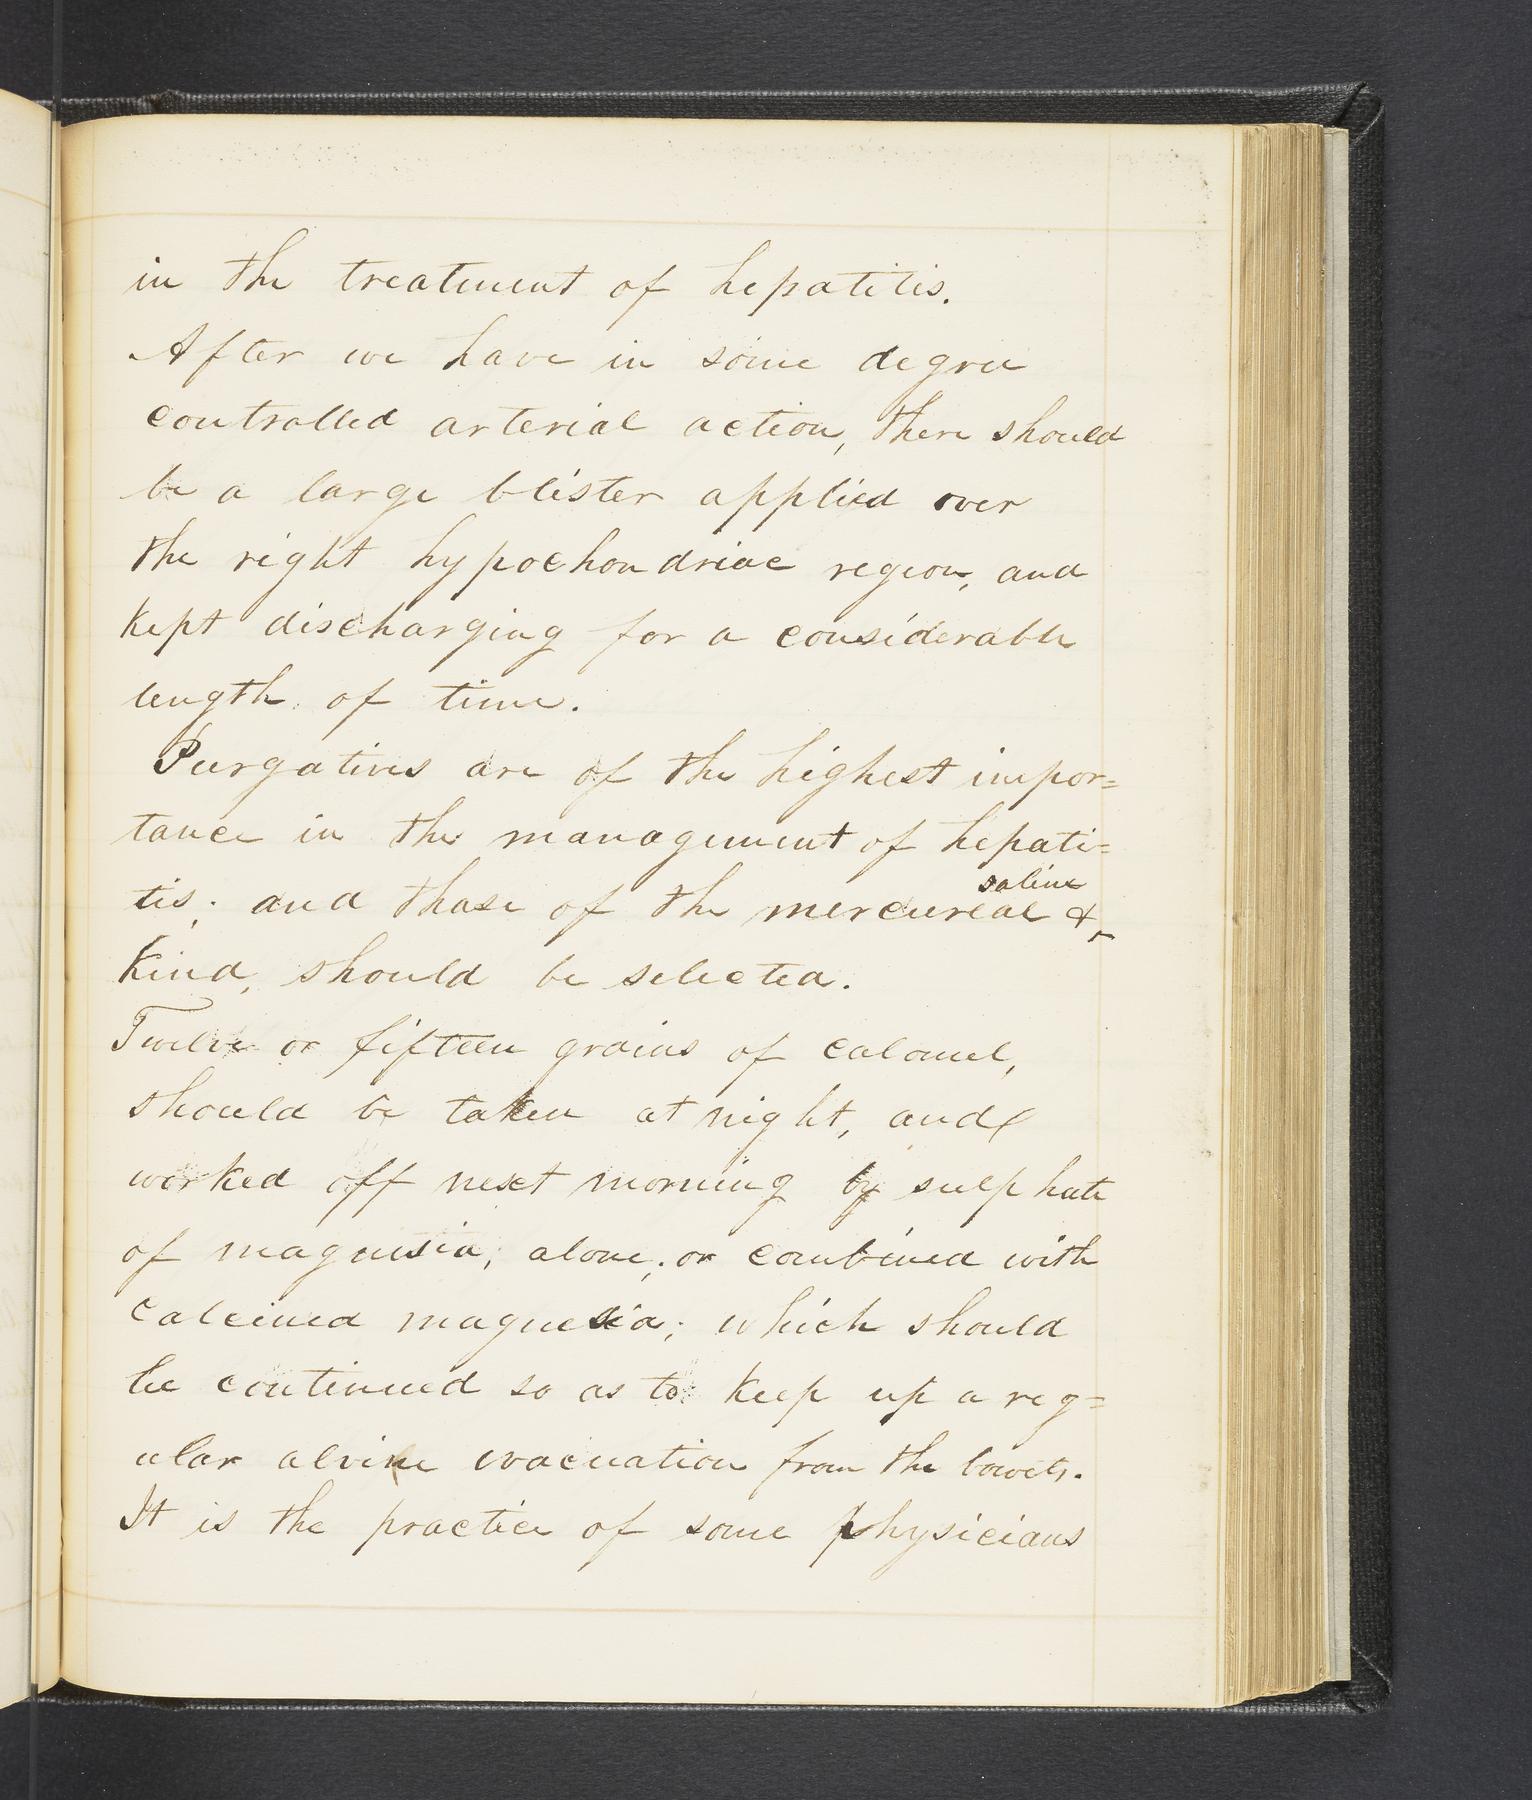 in the treatment of hepatitis.
After we have in some degree
controlled arterial action, there should
be a large blister applied over
the right hypochondriac region, and
kept discharging for a considerable
length of time.
Purgatives are of the highest impor=
tance in the management of hepati=
saline
tis; and those of the mercureal &
kind, should be selected.
Twelve or fifteen grains of calomel,
should be taken at night, and
worked off next morning by sulphate
of magnesia; alone; or combined with
calcined magnesia; which should
be continued so as to keep up a reg=
ular alvine evacuation from the bowels.
It is the practice of some physicians